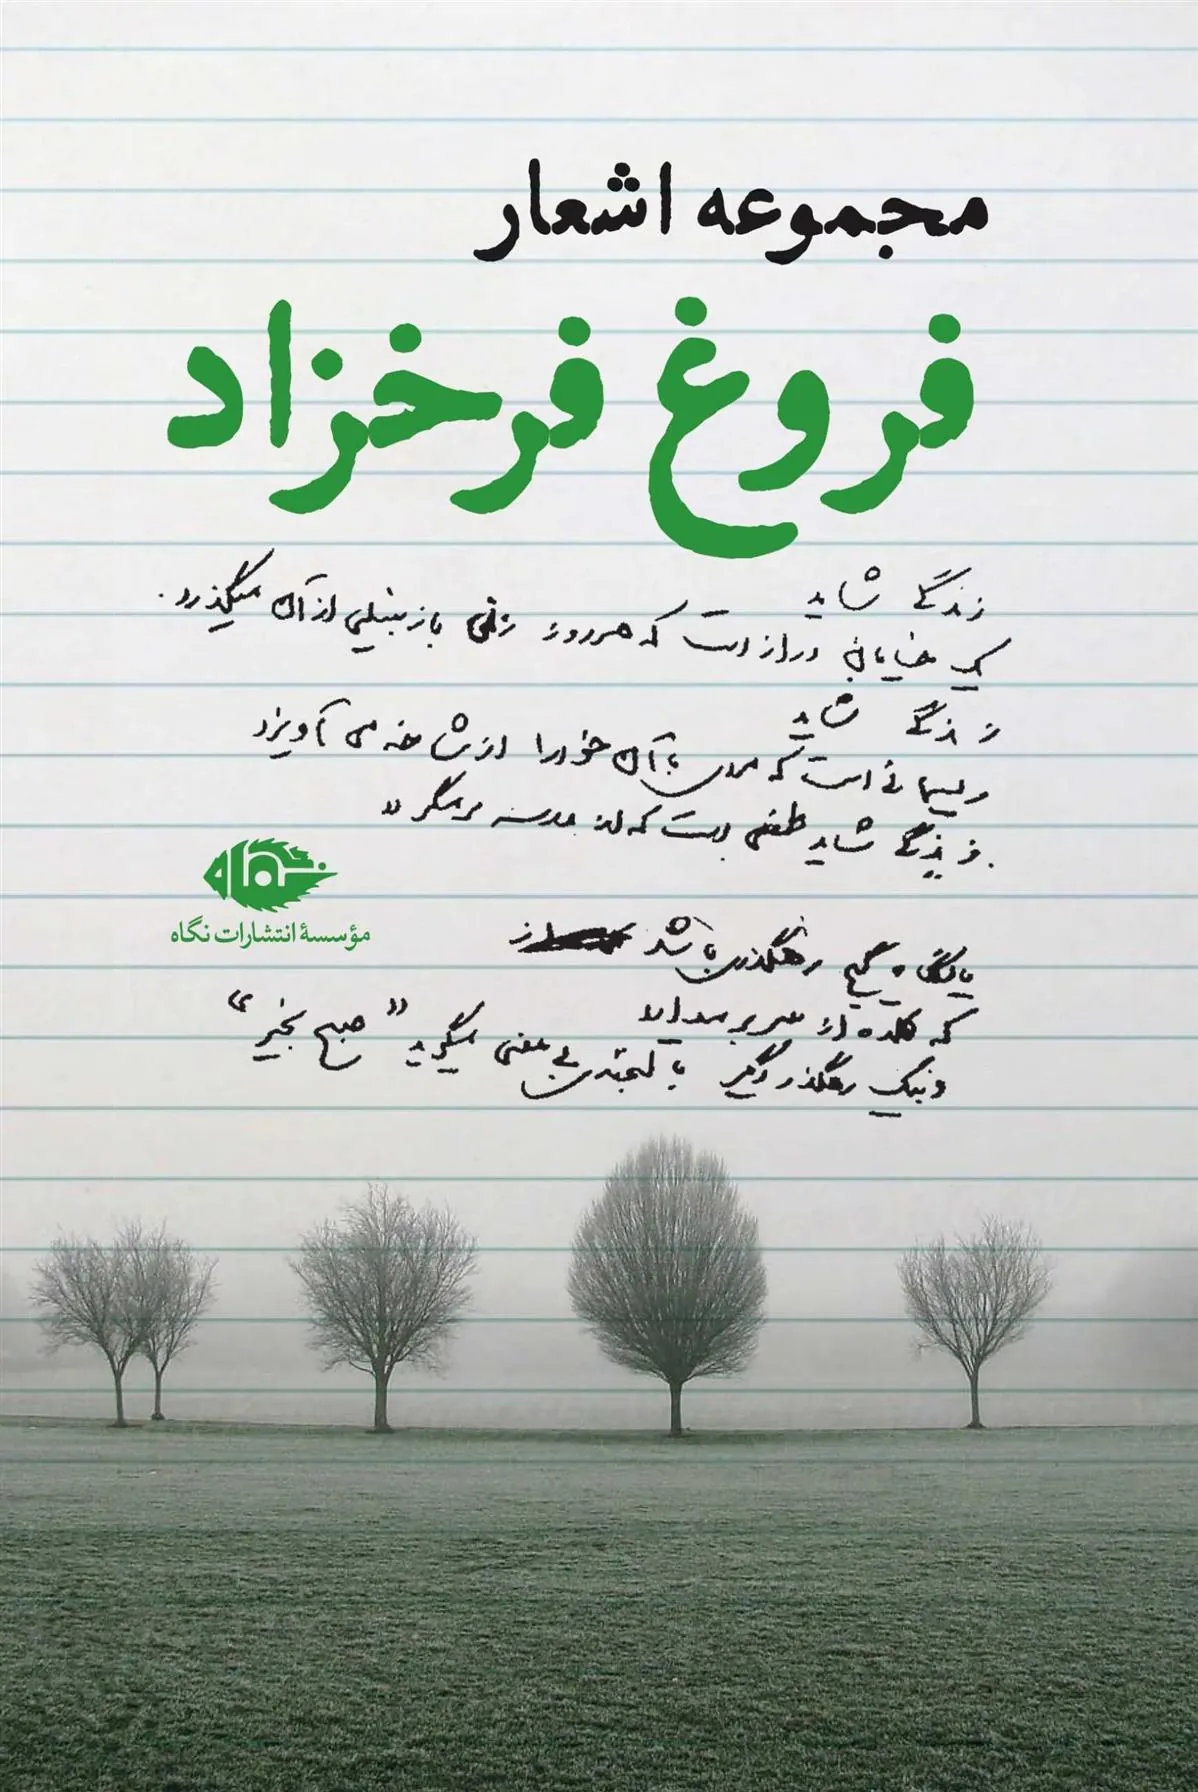 مجموعه اشعار
فروغ فرخزاد
زندگی شاید
یک خیابان درازست که هر روز زنی با زنبیلی از آن میگذرد.
زندگی شاید
ریسمانی است که مردی با آن خود را از شاخه می آویزد
زندگی شاید طفلی است که از مدرسه برمیگردد
نگاه
مؤسسهٔ انتشارات نگاه
یا نگاه گیج رهگذری باشد
که کلاه از سر برمیدارد
و بیک رهگذر دیگر با لبخندی بی معنی میگوید "صبح بخیر"